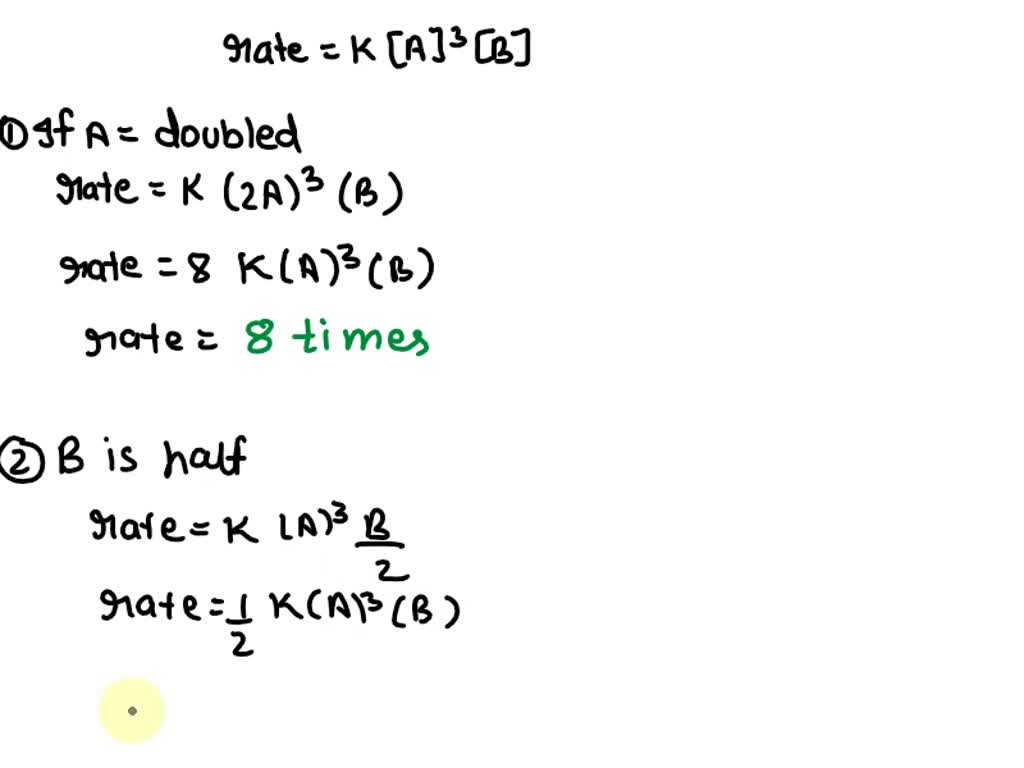 rate = K [A]³ [B]
① If A = doubled
rate = K (2A)³ (B)
rate = 8 K(A)³ (B)
rate = 8 times
② B is half
rate = K (A)³ B/2
rate = 1/2 K(A)³ (B)